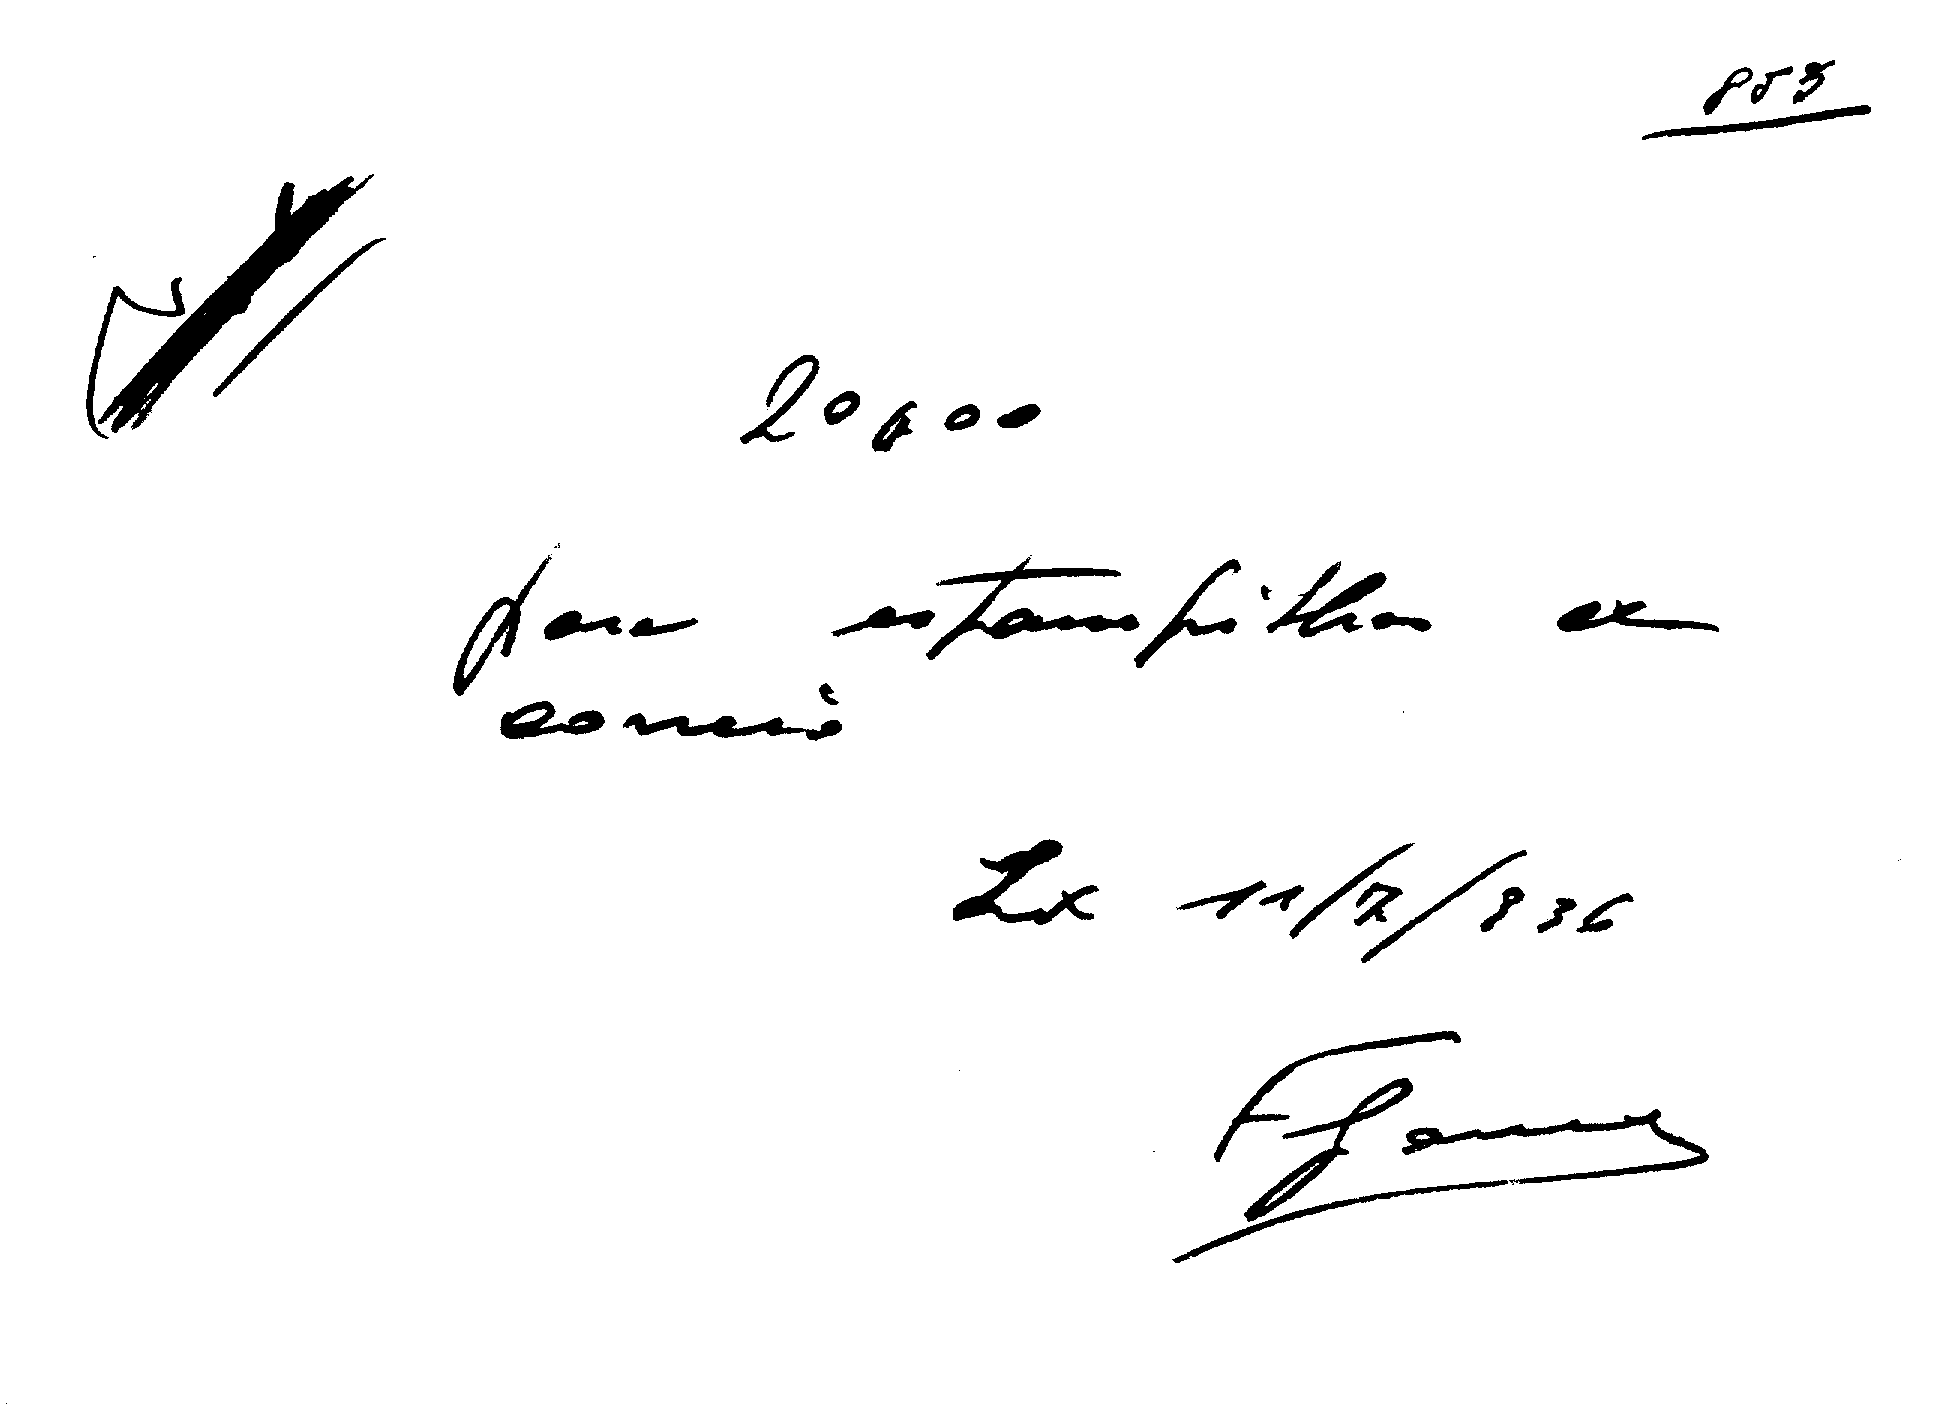 853
20$00
para estampilhas e
correio
Lx 11/7/936